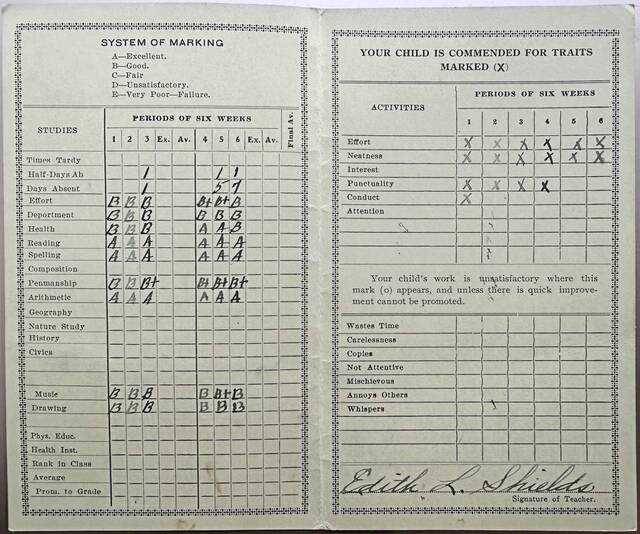 SYSTEM OF MARKING
A—Excellent.
B—Good.
C—Fair
D—Unsatisfactory.
E—Very Poor—Failure.
STUDIES
PERIODS OF SIX WEEKS
1 2 3 Ex. Av. 4 5 6 Ex. Av. Final Av.
Times Tardy
Half-Days Ab 1 1 1
Days Absent 1 5 7
Effort B B B B+ B+ B
Deportment B B B B B B
Health B B B A A B
Reading A A A A A A
Spelling A A A A A A
Composition
Penmanship B B B+ B+ B+ B+
Arithmetic A A A A A A
Geography
Nature Study
History
Civics
Music B B B B B+ B
Drawing B B B B B B
Phys. Educ.
Health Inst.
Rank in Class
Average
Prom. to Grade
YOUR CHILD IS COMMENDED FOR TRAITS
MARKED (X)
ACTIVITIES
PERIODS OF SIX WEEKS
1 2 3 4 5 6
Effort X X X X X X
Neatness X X X X X X
Interest
Punctuality X X X X
Conduct X
Attention
Your child's work is unsatisfactory where this
mark (o) appears, and unless there is quick improve-
ment cannot be promoted.
Wastes Time
Carelessness
Copies
Not Attentive
Mischievous
Annoys Others
Whispers
Edith L. Shields
Signature of Teacher.